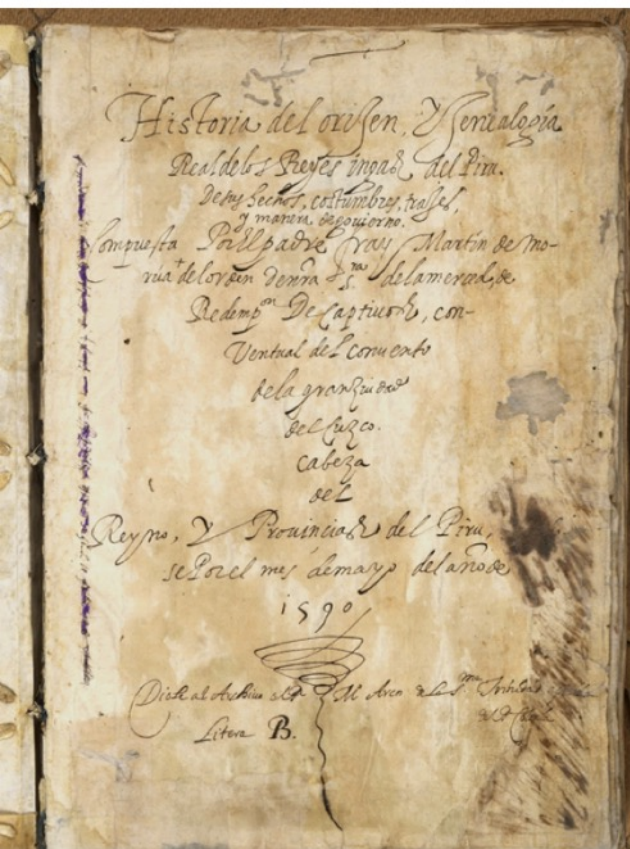 Historia del origen, Y Genealogia
Real delos Reyes ingas del Piru.
De sus hechos, costumbres, trajes,
y manera de gouierno.
Compuesta Por El padre fray Martin de mo-
rua del orden de nra Sra. dela merced, de
Redempon De Captiuos, con-
Ventual del conuento
dela gran ciudad
del Cuzco.
Cabeza
del
Reyno, Y Prouincias del Piru,
se Por el mes de mayo del año de
1590
Litera B.